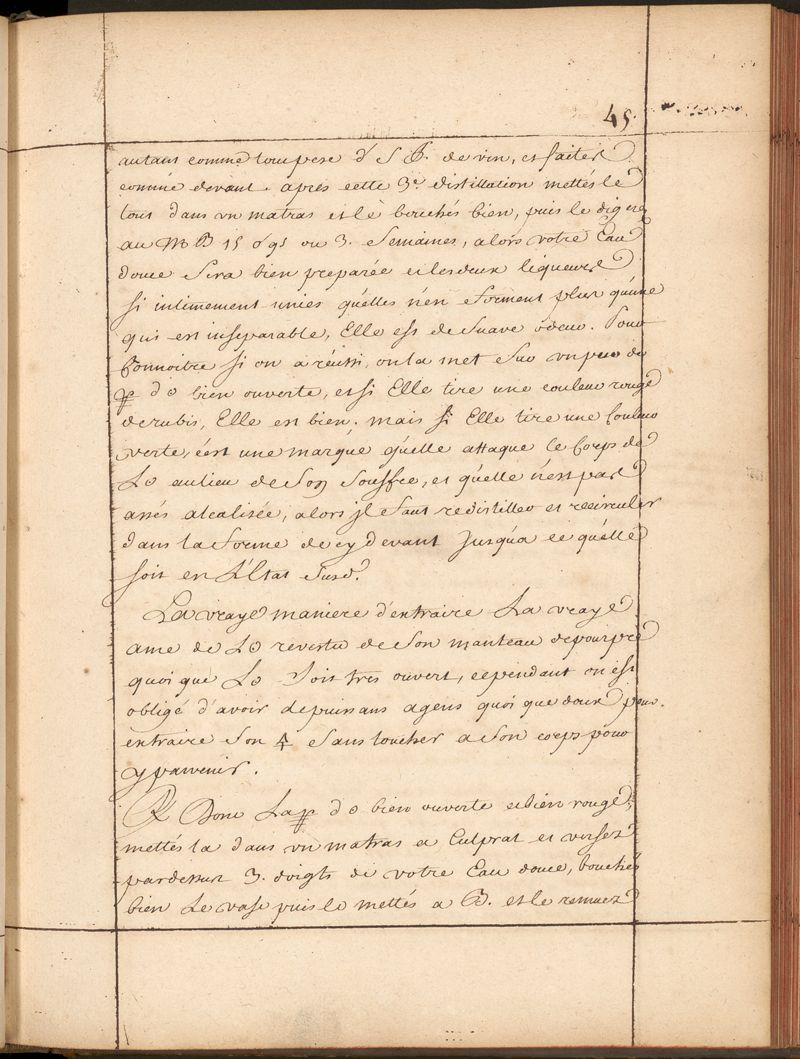 45.
autant comme tout pese d' S B. de vin, et faites
comme devant. apres cette 3.e distillation mettés le
tout dans un matras et le bouchés bien, puis le digerez
au M B 15 jours ou 3. Semaines, alors votre Eau
douce Sera bien preparée et les deux liqueures
si intimement unies quelles n'en forment plus qu'une
qui est inseparable, Elle est de Suave odeur. Pour
Connoitre Si on a réussi, on la met Sur un peu de
d ☉ bien ouverte, et si Elle tire une couleur rouge
de rubis, Elle est bien. mais Si Elle tire une Couleur
verte, c'est une marque qu'elle attaque le Corps de
L☉ au lieu de Son Souffre, et qu'elle n'est pas
assés alcalisée, alors jl faut redistiller et recirculer
dans la forme de cy devant Jusqu'a ce qu'elle
soit en L'Etat Susd.t
La vraye maniere d'extraire La vraye
ame de L☉ revertu de Son manteau de pourpre
quoi que L☉ Soit tres ouvert, cependant on est
obligé d'avoir de puissans agens quoi que doux pour
extraire Son 🜍 Sans toucher a Son corps pour
y parvenir.
℞ Donc La d ☉ bien ouverte et bien rouge,
mettés la dans un matras a Cul plat et versez
par dessus 3. doigts de votre Eau douce, bouchés
bien Le vase puis le mettés a B. et le remuez